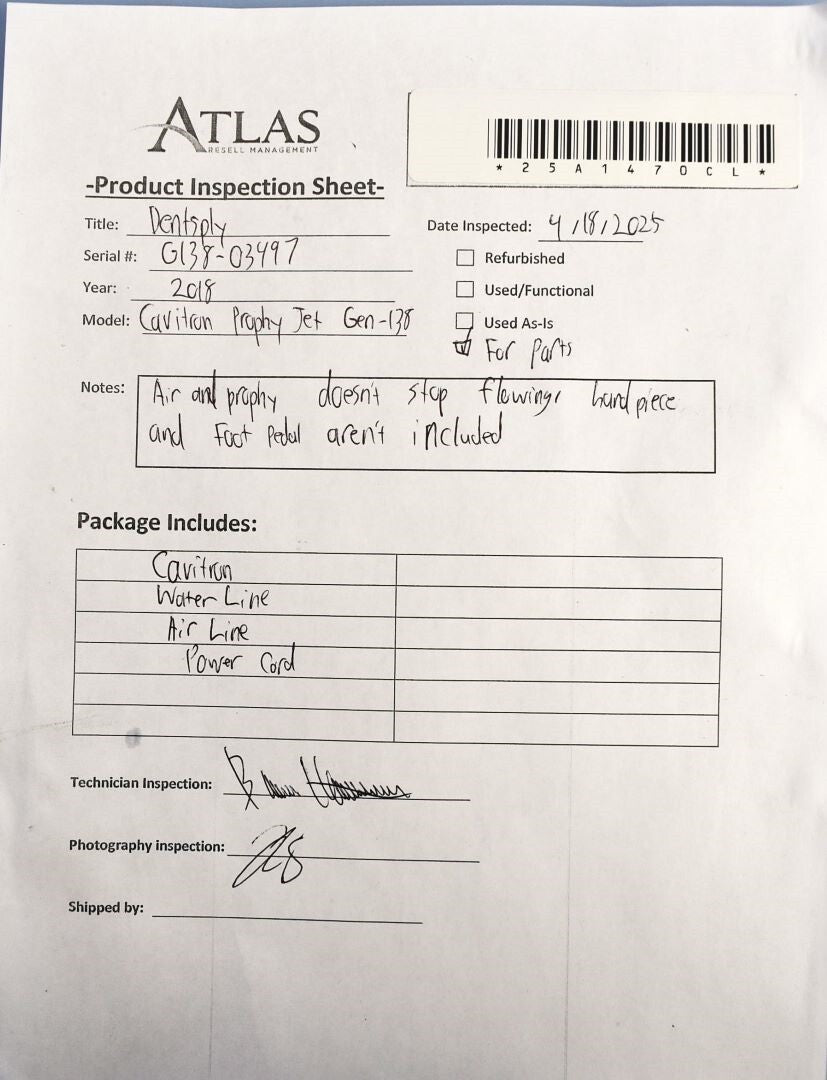 ATLAS
RESELL MANAGEMENT
* 2 5 A 1 4 7 0 C L *
-Product Inspection Sheet-
Title: Dentsply
Date Inspected: 4/18/2025
Serial #: G138-03497
Refurbished
Year: 2018
Used/Functional
Model: Cavitron Prophy Jet Gen-138
Used As-Is
For Parts
Notes: Air and prophy doesn't stop flowing, hand piece
and Foot Pedal aren't included
Package Includes:
Cavitron
Water Line
Air Line
Power Cord
Technician Inspection:
Photography inspection:
Shipped by: